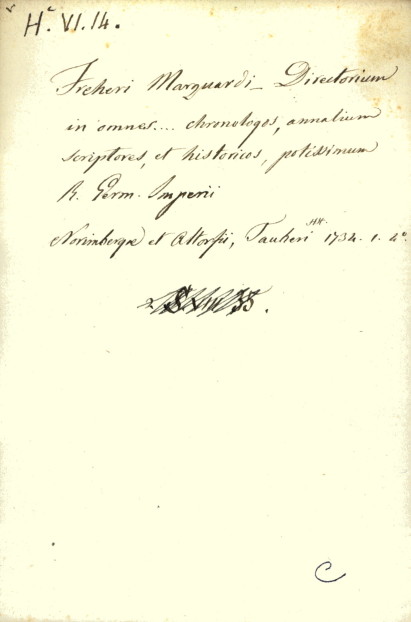 Hᶜ. VI. 14.
Freheri Marquardi_ Directorium
in omnes.... chronologos, annalium
scriptores, et historicos, potissimum
R. Germ. Imperii
Norimbergæ et Altorfii, Tauberi 1734. 1. 4°.
C